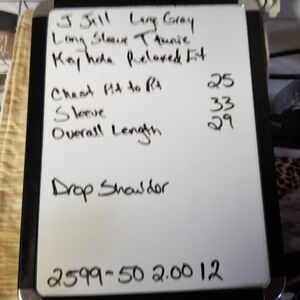 J Jill Larg Gray
Long Sleeve Tunic
Relaxed Fit
Chest Pit to Pit 25
Sleeve 33
Overall Length 29
Drop Shoulder
2599-50 2.00 12